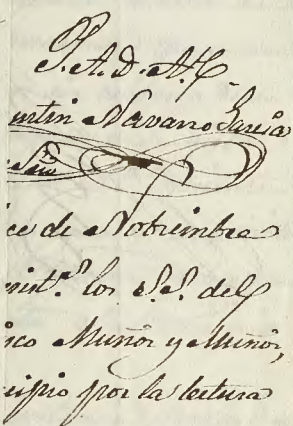 P. A. D. A. Y.
artin Navarro Garcia
ice de Nobiembre
inist.ⁿ los S.S. del
isco Muñoz y Muñoz,
cipio por la lectura